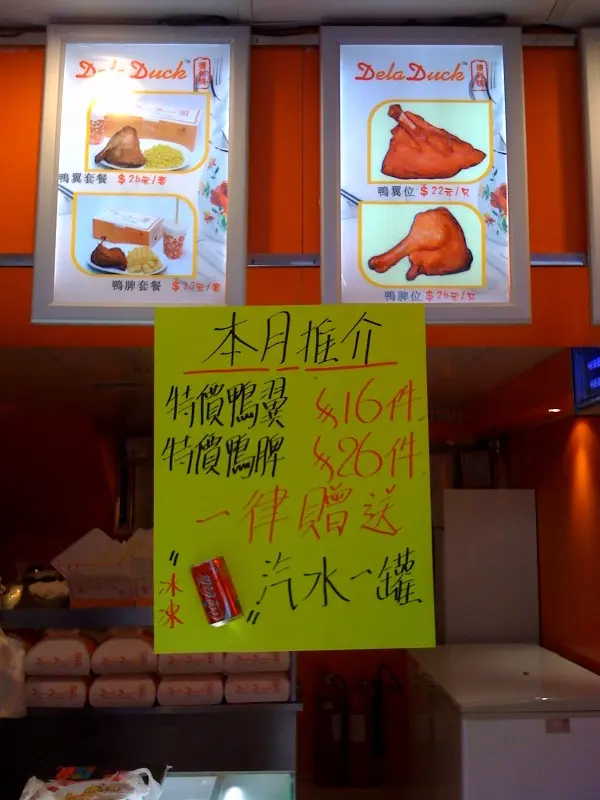 Dela Duck™
鴨翼套餐 $26元/套
鴨脾套餐
Dela Duck™
鴨翼位 $22元/只
鴨脾位 $26元/只
本月推介
特價鴨翼 $16件
特價鴨脾 $26件
一律贈送
"冰凍
Coca-Cola
"汽水一罐